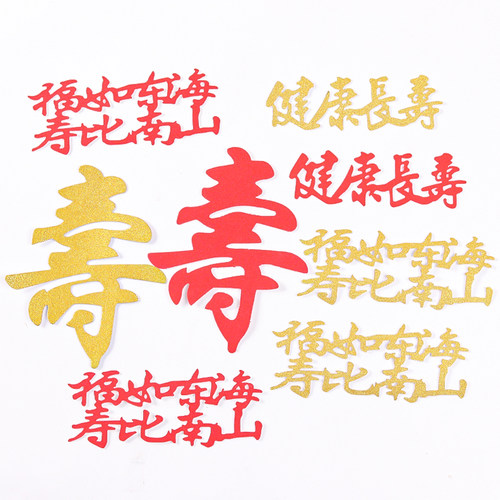 福如东海
寿比南山
健康長壽
健康長壽
壽
壽
福如东海
寿比南山
福如东海
寿比南山
福如东海
寿比南山